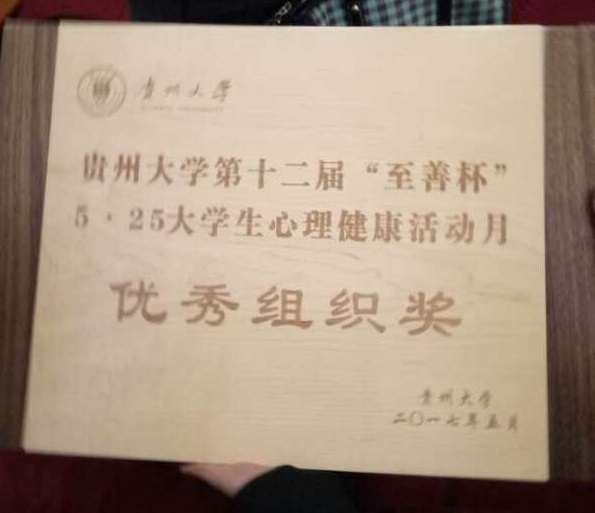 贵州大学
贵州大学第十二届“至善杯”
5·25大学生心理健康活动月
优秀组织奖
贵州大学
二〇一七年五月